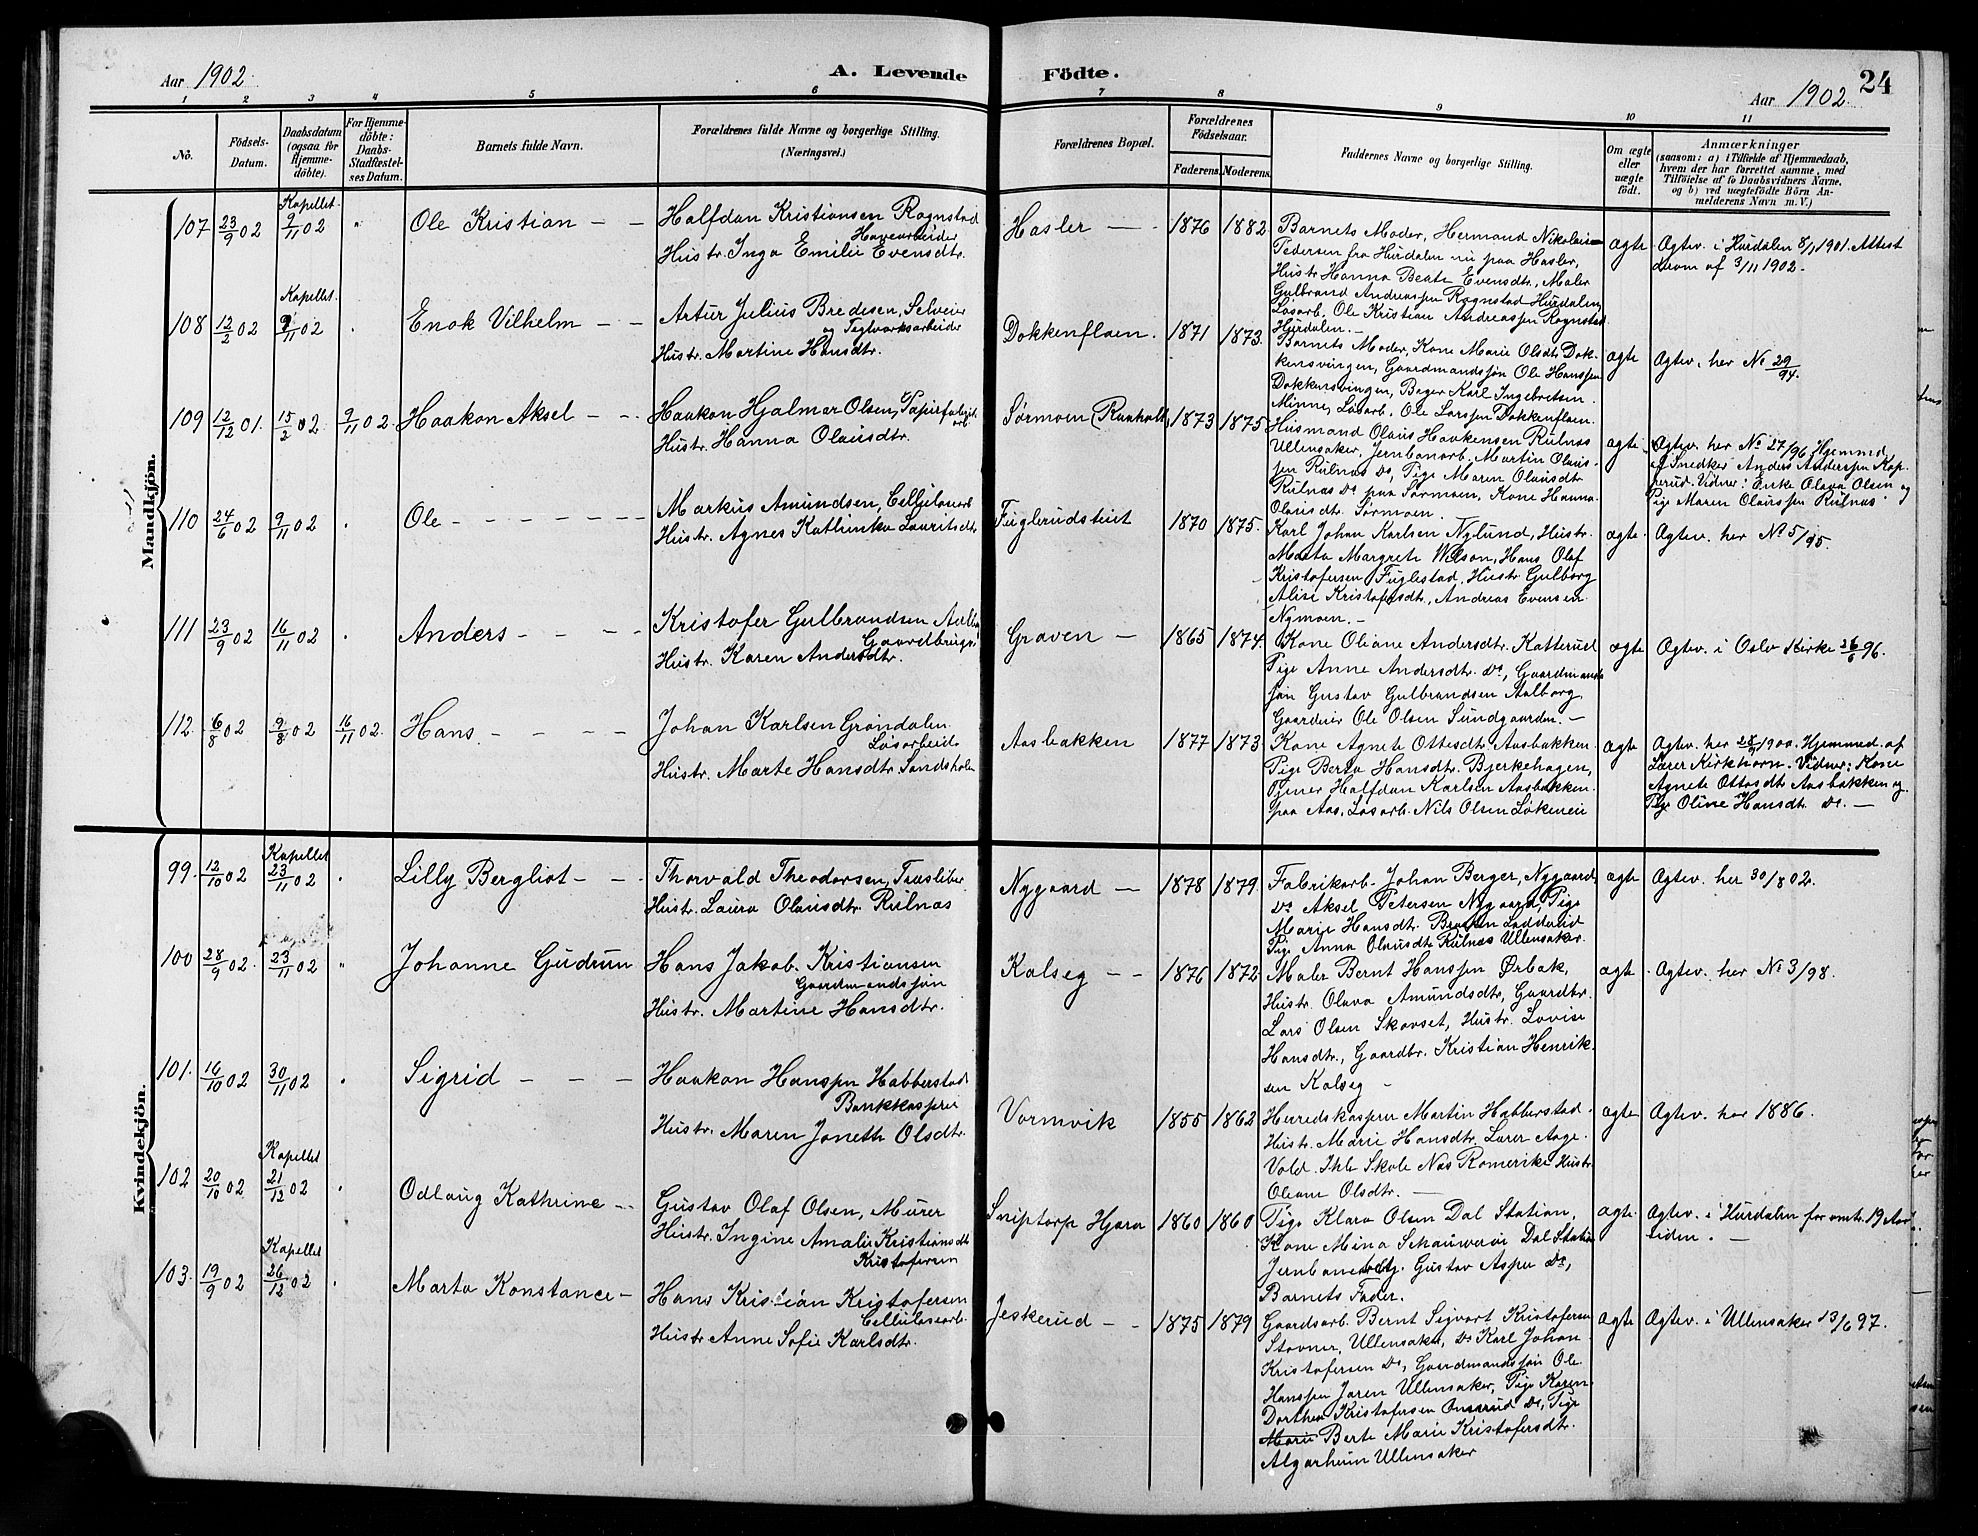 Aar 1902.
A. Levende Födte.
24
Aar 1902.
1 2 3 4 5 6 7 8 9 10 11
No.
Födsels-Datum.
Daabsdatum (ogsaa for Hjemme-döbte).
For Hjemme-döbte: Daabs-Stadfæstel-ses Datum.
Barnets fulde Navn.
Forældrenes fulde Navne og borgerlige Stilling. (Næringsvei.)
Forældrenes Bopæl.
Forældrenes Födselsaar.
Faderens. Moderens.
Faddernes Navne og borgerlige Stilling.
Om ægte eller uægte födt.
Anmærkninger
(saasom: a) i Tilfælde af Hjemmedaab,
hvem der har forrettet samme, med
Tilföielse af to Daabsvidners Navne,
og b) ved uægtefödte Börn An-
melderens Navn m. V.)
Mandkjön.
107 23/9 02 Kapellet 9/11 02 " Ole Kristian
Halfdan Kristiansen Rognstad
Havearbeider
Hustr. Inga Emilie Evensdtr.
Hasler 1876 1882
Barnets Moder, Hermand Nikolai
Pedersen fra Hurdalen nu paa Hasler,
Hustr Hanna Beate Evensdtr., Maler
Gulbrand Andreassen Rognstad Hurdalen,
Løsarb. Ole Kristian Andreassen Rognstad
Hurdalen.
ægte
Ægtev. i Hurdalen 8/1 1901. Attest
derom af 3/11 1902.
108 12/2 02 Kapellet 9/11 02 Enok Vilhelm
Artur Julius Bredesen, Selveier
og Teglværksarbeider
Hustr. Martine Hansdtr.
Dokkenfloen. 1871 1873.
Barnets Moder, Kone Marie Olsdtr Dok-
kensvingen, Gaardmandsjøn Ole Hanssen
Dokkensvingen, Bager Karl Ingebretsen
Minne, Løsarb. Ole Larssen Dokkenfloen.
ægte
Ægtev. her No 29/94.
109 12/12 01. 15/2 02 9/11 02. Haakon Aksel
Haakon Hjalmar Olsen, Papirfabrik
arb.
Hustr. Hanna Olausdtr.
Sørmoen (Raaholt) 1873 1875
Husmand Olaus Haakensen Rulnas
Ullensaker, Jernbanarb. Martin Olaus-
sen Rulnas Do, Pige Maren Olausdtr
Rulnas Do paa Sørmoen, Kone Hanna
Olausdtr. Sørmoen.
ægte
Ægtev. her No 27/96 Hjemmed.
af Snedker Anders Anderssen Kop-
perud. Vidner: Enke Olava Olsen og
Pige Maren Olaussen Rulnas.
110 24/6 02 9/11 02 Ole
Markus Amundsen, Cellulosearb
Hustr. Agnes Kathinka Lauritsdtr
Fuglerudsteiet 1870 1875.
Karl Johan Karlsen Nylund, Hustr.
Marta Margrete Wilson, Hans Olaf
Kristofersen Fuglestad, Hustr Gulborg
Alise Kristofersdtr., Andreas Evensen
Nymoen.
ægte
Ægtev. her No 5/95.
111 23/9 02 16/11 02 Anders
Kristofer Gulbrandsen
Gaardbruger
Hustr. Karen Andersdtr.
Graven 1865 1874.
Kone Oliane Andersdtr. Katterud
Pige Anne Andersdtr. Do, Gaardmands
søn Gustav Gulbrandsen Aalborg,
Gaardeier Ole Olsen Sundgaarden.
ægte
Ægtev. i Oslo Kirke 26/6 96.
112. 6/8 02 9/8 02 16/11 02. Hans
Johan Karlsen Grøndalen
Løsarbeider
Hustr. Marte Hansdtr. Sandsholen
Aasbakken 1877 1873
Kone Agnete Ottesdtr Aasbakken
Pige Berta Hansdtr. Bjerkehagen,
Tjener Halfdan Karlsen Aasbakken
paa Aas, Løsarb. Nils Olsen Løkeneie
ægte
Ægtev. her 28/9 1900. Hjemmed. af
Lærer Kirkhorn. Vidner: Kone
Agnete Ottosdtr Aasbakken og
Pige Oline Hansdtr. Do.
Kvindekjön.
99. 12/10 02 Kapellet 23/11 02 Lilly Bergliot
Thorvald Theodorsen, Træsliber
Hustr. Laura Olausdtr. Rulnas
Nygaard 1878 1879.
Fabrikarb. Johan Berger, Nygaard
Do Aksel Petersen Nygaard, Pige
Marie Hansdtr. Braaten Ladderud
Pige Anna Olausdtr. Rulnas Ullensaker.
ægte
Ægtev. her 30/8 02.
100 28/9 02. 23/11 02 " Johanne Gudrun
Hans Jakob Kristiansen
Gaardmandssøn
Hustr. Martine Hansdtr.
Kalseg 1876 1872
Maler Bernt Hanssen Ørbak,
Hustr. Olava Amundsdtr, Gaardbr.
Lars Olsen Skovset, Hustr. Lovise
Hansdtr., Gaardbr. Kristian Henrik-
sen Kalseg
ægte
Ægtev. her No 3/98.
101. 16/10 02 30/11 02 Sigrid
Haakon Hanssen Habberstad
Bankkasserer
Hustr. Maren Janeth Olsdtr.
Vormvik 1855 1862
Herredskasserer Martin Habberstad
Hustr. Marie Hansdtr. Lærer Aage
Vold. Ihle Skole Nas Romerike Hustr
Oliane Olsdtr.
ægte
Ægtev. her 1886.
102 20/10 02 Kapellet 21/12 02 Odlaug Kathrine
Gustav Olaf Olsen, Murer
Hustr. Ingine Amalie Kristiansdtr
Kristofersen
Sniptorp Hjera 1860 1860
Pige Klara Olsen Dal Station,
Kone Mina Dal Station
Gustav Do,
Barnets Fader.
ægte
Ægtev. i Hurdalen for omtr. 19 Aar
siden.
103. 19/9 02 Kapellet 26/12 02 Marta Konstance
Hans Kristian Kristofersen
Cellulosearb.
Hustr Anne Sofie Karlsdtr.
Jeskerud 1875 1879
Gaardsarb. Bernt Sigvart Kristofersen
Stovner, Ullensaker, Do Karl Johan
Kristofersen Do, Gaardmandssøn Ole
Hanssen Jaren Ullensaker, Pige Karen
Dorthea Kristofersen Do, Pige
Marie Berte Marie Kristofersdtr.
Algarheim Ullensaker
ægte
Ægtev. i Ullensaker 13/6 97.